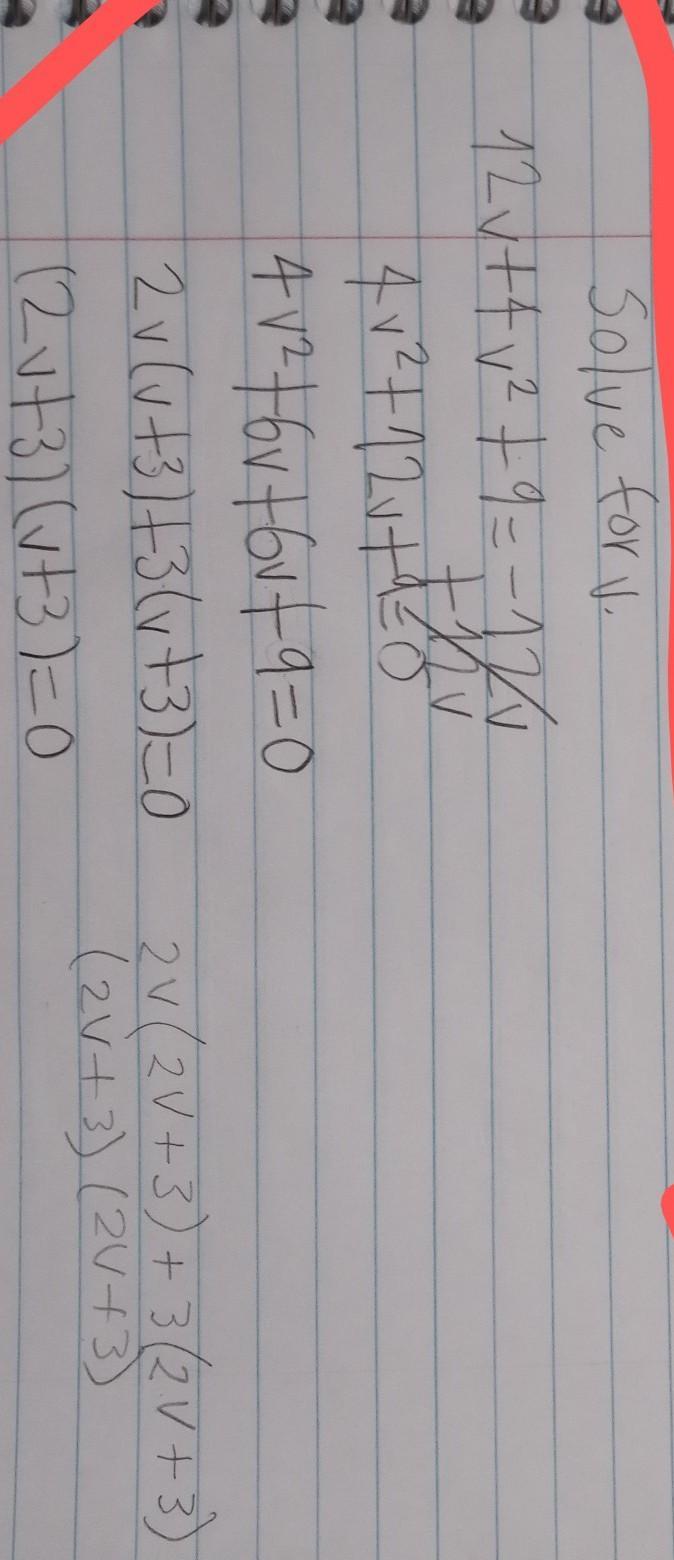 Solve for v.
12v+4v²+9=-12v
+12v
4v²+12v+9=0
4v²+6v+6v+9=0
2v(v+3)+3(v+3)=0
2v(2v+3)+3(2v+3)
(2v+3)(v+3)=0
(2v+3)(2v+3)